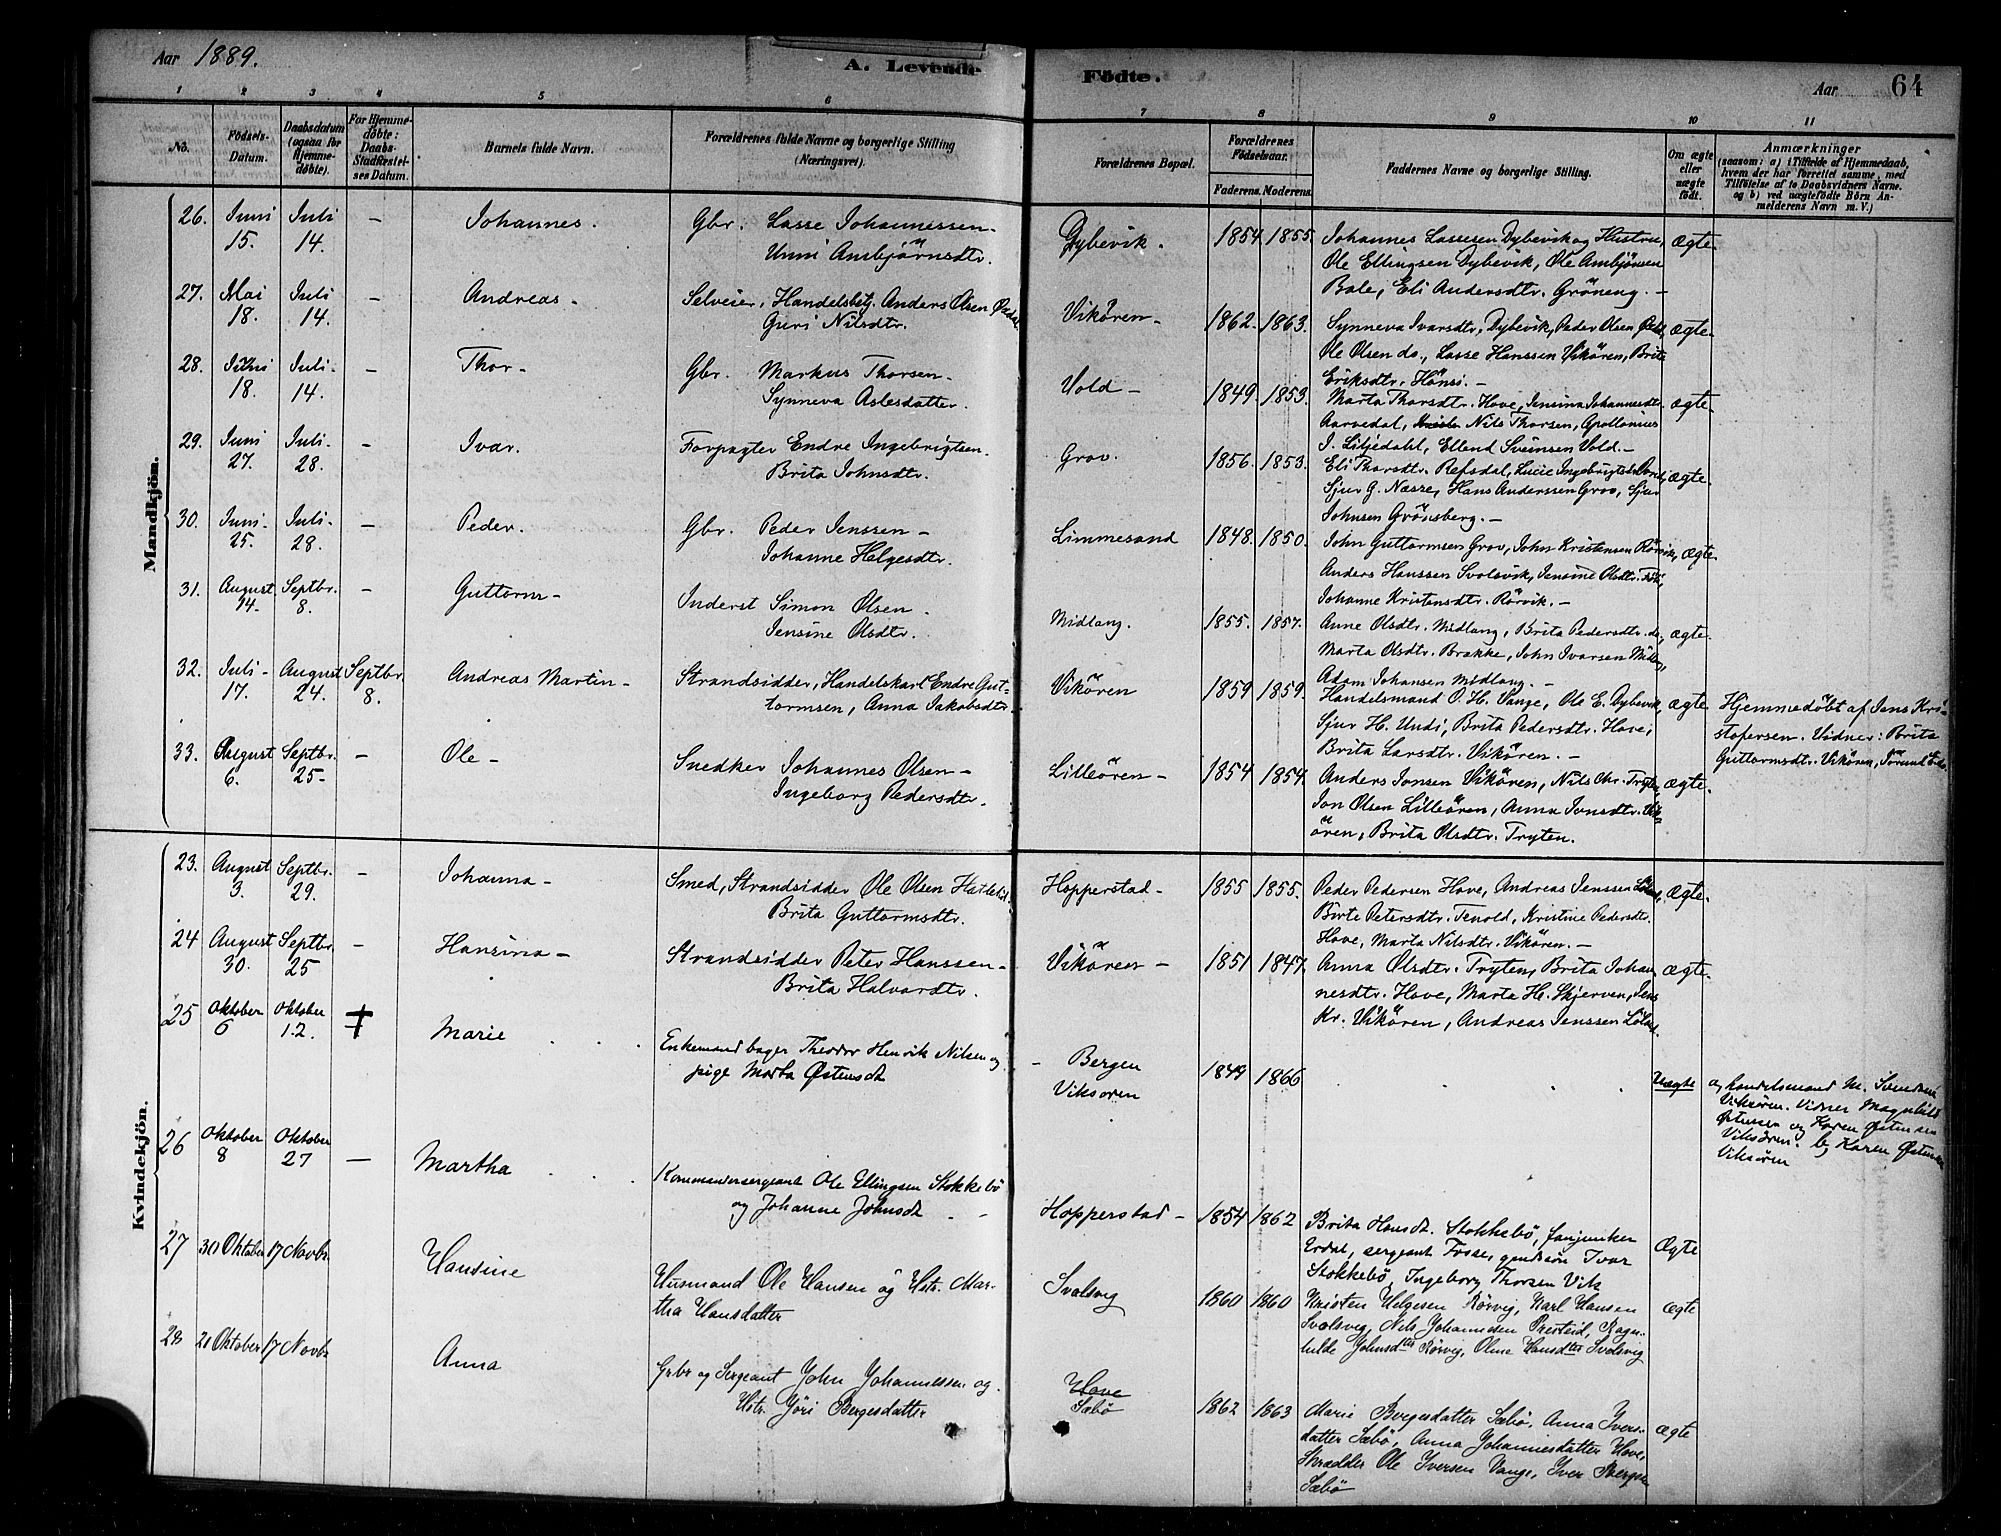 Aar 1889.
A. Levende Födte.
Aar 64
1 2 3 4 5 6 7 8 9 10 11
No.
Födsels-Datum.
Daabsdatum (ogsaa for Hjemmedöbte).
For Hjemmedöbte: Daabs-Stadfæstelses Datum.
Barnets fulde Navn.
Forældrenes fulde Navne og borgerlige Stilling (Næringsvei).
Forældrenes Bopæl.
Forældrenes Födselsaar.
Faderens. Moderens.
Faddernes Navne og borgerlige Stilling.
Om ægte eller uægte födt.
Anmærkninger
(saasom: a) i Tilfælde af Hjemmedaab, hvem der har forrettet samme, med Tilföielse af to Daabsvidners Navne. og b) ved uægtefödte Börn Anmelderens Navn m. V.)
Mandkjön.
26. Juni 15. Juli 14. – Johannes. Gbr. Lasse Johannessen – Unni Ambjörnsdtr. Dybevik. 1854. 1855. Johannes Lassesen Dybevik og Hustru, ægte.
Ole Ellingsen Dybevik, Ole Ambjörnsen
Bale, Eli Andersdtr. Gröneng. –
27. Mai 18. Juli 14. – Andreas – Selveier, Handelsbetj. Anders Olsen Guri Nilsdtr. Vikören – 1862. 1863. Synneva Ivarsdtr. Dybevik, Peder Olsen ægte.
Ole Olsen do., Lasse Hanssen Vikören, Brita
Eriksdtr. Hönsi. –
28. Juni 18. Juli 14. – Thor – Gbr. Markus Thorsen – Synneva Aslesdatter. Vold – 1849. 1853. Marta Thorsdtr. Hove, Jensina Johannesdtr. ægte.
Aarvedal, Nils Thorsen, Apollonius
J. Liljedahl, Ellend Sveinsen Vold. –
29. Juni 27. Juli 28. – Ivar. Forpagter Endre Ingebrigtsen. Brita Johnsdtr. Grov. 1856. 1853. Eli Thorsdtr. Refsdal, Lucie Ingebrigtsdtr. ægte.
Sjur G. Næsse, Hans Anderssen Grov, Sjur
Johnsen Grönsberg. –
30. Juni 25. Juli 28. – Peder. Gbr. Peder Jenssen – Johanne Helgesdtr. Limmesand 1848. 1850. John Guttormsen Grov, John Kristensen Rörvik, ægte.
Anders Hanssen Svolsvik, Jensine Olsdtr.
Johanne Kristensdtr. Rörvik. –
31. August 14. Septbr. 8. – Guttorm – Inderst Simon Olsen. Jensine Olsdtr. Midlang. 1855. 1857. Anne Olsdtr. Midlang, Brita Pedersdtr. do, ægte.
Marta Olsdtr. Brække, John Ivarsen Midlang,
Adam Johansen Midlang. –
32. Juli 17. August 24. Septbr. 8. Andreas Martin – Strandsidder, Handelskarl Endre Guttormsen, Anna Jakobsdtr. Vikören 1859 1859. Handelsmand O. H. Vange, Ole E. Dybevik, ægte. Hjemmedöbt af Jens Kri-
Sjur H. Undi, Brita Pedersdtr. Hove, stofersen. Vidner: Brita
Brita Larsdtr. Vikören. – Guttormsdtr. Vikören,
33. August 6. Septbr. 25 – – Ole – Snedker Johannes Olsen – Ingeborg Pedersdtr. Lilleören – 1854 1854. Anders Jonsen Vikören, Nils Chr. Tryten, ægte.
Jon Olsen Lilleören, Anna Jonsdtr. Vik-
ören, Brita Olsdtr. Tryten.
Kvindekjön.
23. August 3. Septbr. 29. – Johanna – Smed, Strandsidder Ole Olsen Brita Guttormsdtr. Hopperstad – 1855 1855. Peder Pedersen Hove, Andreas Jenssen ægte.
Birte Petersdtr. Tenold, Kristine Pedersdtr.
Hove, Marta Nilsdtr. Vikören. –
24 August 30. Septbr. 25 – Hansina – Strandsidder Peter Hanssen – Brita Halvardtr. Vikören – 1851 1847. Anna Olsdtr. Tryten, Brita Johan- ægte.
nesdtr. Hove, Marta H. Skjerven, Jens
Kr. Vikören, Andreas Jenssen
25 Oktober 6 Oktober 12. Marie Enkemand bager Theodor Henrik Nilsen og pige Marta Østensdt – Bergen Viksoren 1849 1866 Uægte a, handelsmand M.
Viksören. Vidner Magnhild
Østensen og Karen Østensen
Viksören. b, Karen Østensen
Viksören
26 Oktober 8 Oktober 27 – Martha Kommandersergeant Ole Ellingsen Stokkebö og Johanne Johnsdt Hopperstad – 1854 1862 Brita Hansdt. Stokkebö, fanjunker Ægte
Erdal, sergeant Fosse, Ivar
Stokkebö, Ingeborg Thorsen Vik
27 30 Oktober 17 Novbr. Hansine Husmand Ole Hansen og Hstr. Martha Hansdatter Svolsvig 1860 1860 Kristen Helgesen Rörvig, Karl Hansen ægte
Svolsvig, Nils Johannesen Presteid, Ragn-
hilde Johnsdtr Rörvig, Oline Hansdtr Svolsvig
28 21 Oktober 17 Novbr Anna Grbr og Sergeant John Johannessen og Hstr. Jöri Bergesdatter Hove Sæbö 1862 1863 Marie Bergesdatter Sæbö. Anna Ivers- ægte
datter Sæbö, Anna Johannesdatter Hove,
Skrædder Ole Iversen Vange, Iver Bergesen
Sæbö